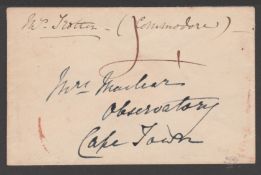 Mrs Trotter (Commodore)
Mrs Maclear
Observatory
Cape Town